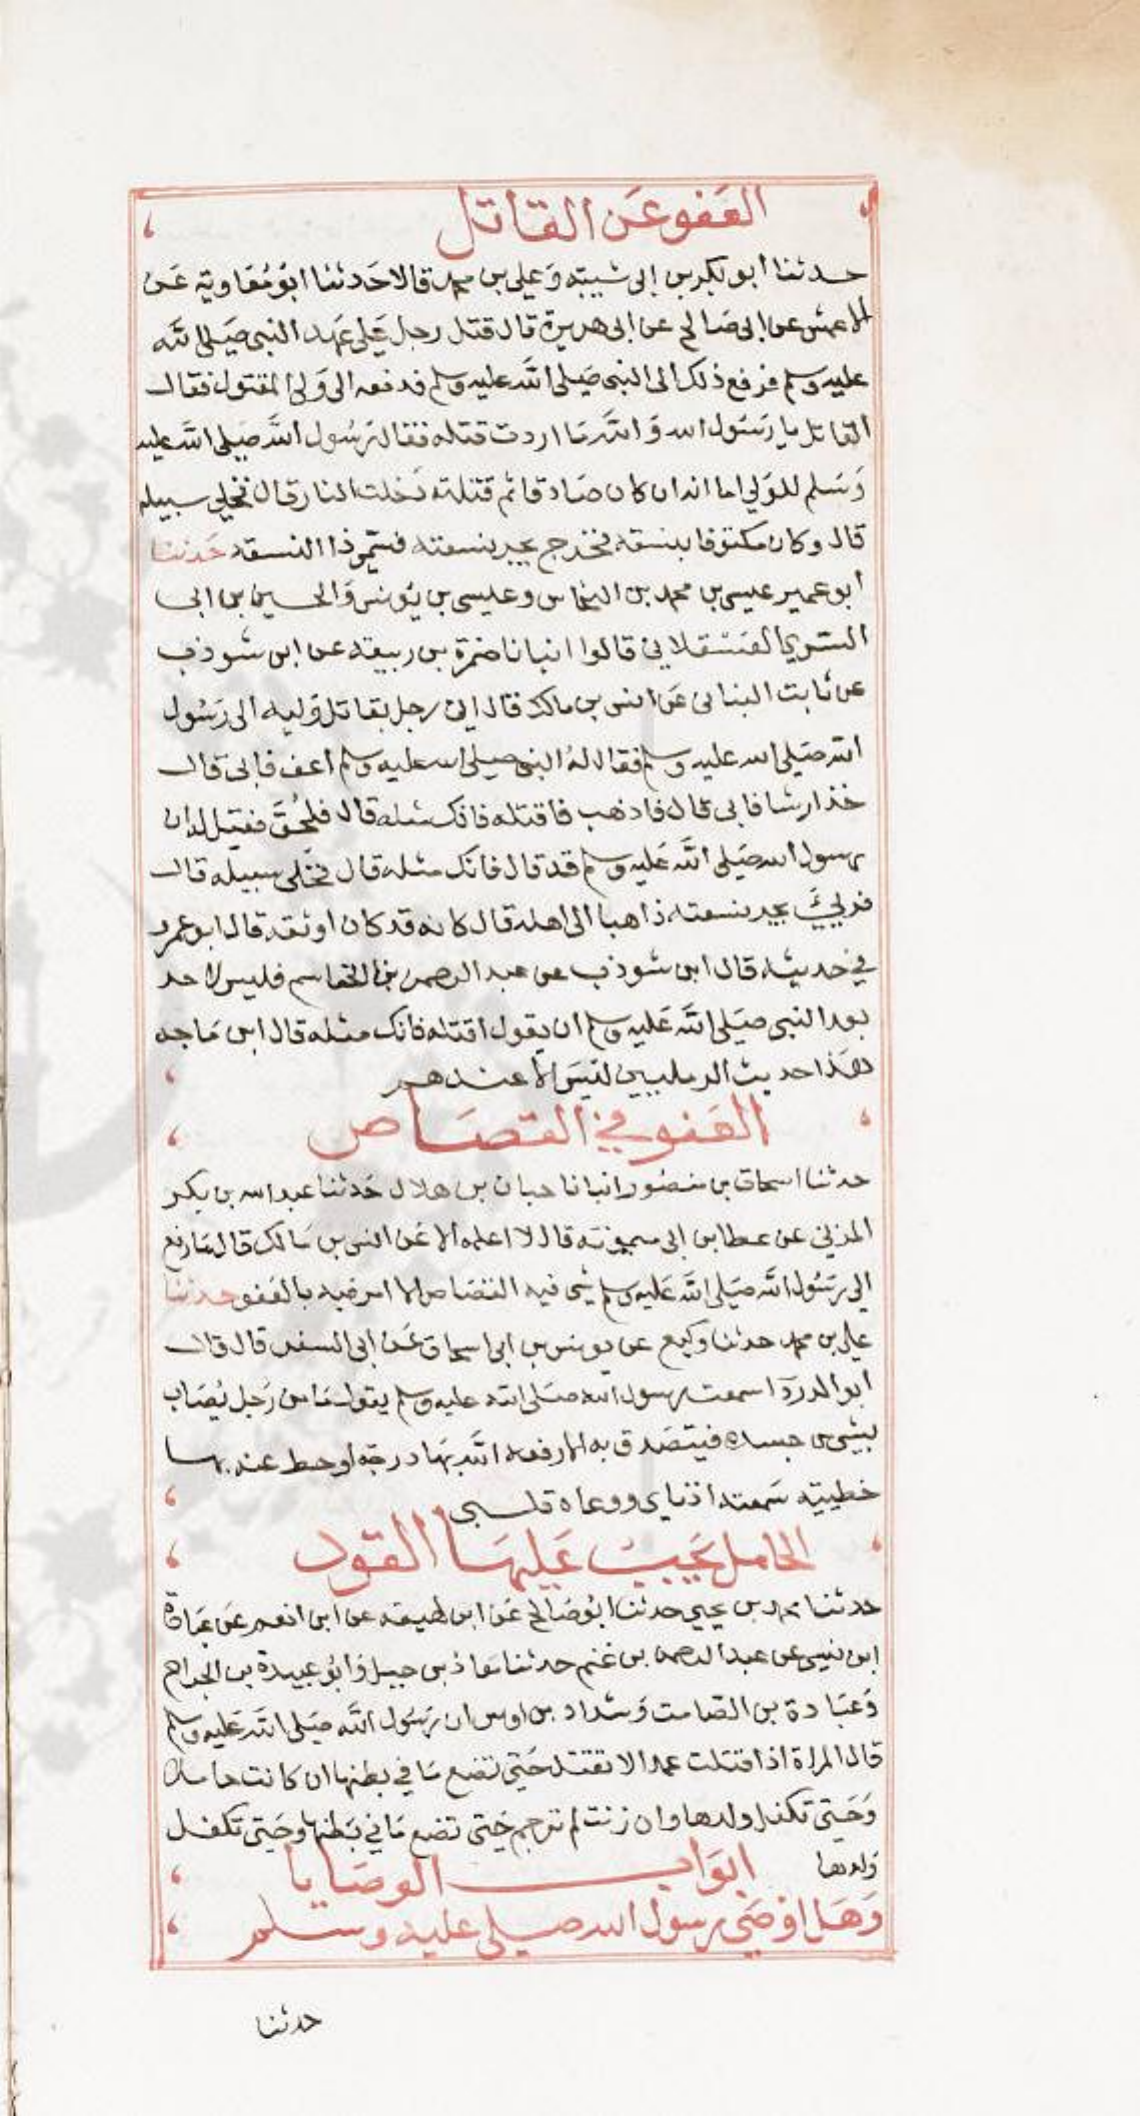 العفو عن القاتل
حدثنا ابو بكر بن ابى شيبة وعلي بن محمد قالا حدثنا ابو معاوية عن
الاعمش عن ابى صالح عن ابى هريرة قال قتل رجل على عهد النبى صلى الله
عليه وسلم فرفع ذلك الى النبى صلى الله عليه وسلم فدفعه الى ولى المقتول فقال
القاتل يا رسول الله والله ما اردت قتله فقال رسول الله صلى الله عليه
وسلم للولي اما انه ان كان صادقا ثم قتلته دخلت النار قال فخلى سبيله
قال وكان مكتوفا بنسعة فخرج يجر نسعته فسمي ذا النسعة حدثنا
ابو عمير عيسى بن محمد بن النحاس وعيسى بن يونس والحسين بن ابى
السري العسقلاني قالوا انبانا ضمرة بن ربيعة عن ابن شوذب
عن ثابت البنانى عن انس بن مالك قال اتى رجل بقاتل وليه الى رسول
الله صلى الله عليه وسلم فقال له النبى صلى الله عليه وسلم اعف فابى قال
خذ ارشا فابى قال فاذهب فاقتله فانك مثله قال فلحق فقيل له ان
رسول الله صلى الله عليه وسلم قد قال فانك مثله قال فخلى سبيله قال
فرئي يجر نسعته ذاهبا الى اهله قال كانه قد كان اوثقه قال ابو عمير
في حديثه قال ابن شوذب عن عبد الرحمن بن القاسم فليس لاحد
بعد النبى صلى الله عليه وسلم ان يقول اقتله فانك مثله قال ابن ماجه
هذا حديث الرمليين ليس الا عندهم
العفو في القصاص
حدثنا اسحاق بن منصور انبانا حبان بن هلال حدثنا عبد الله بن بكر
المزني عن عطا بن ابى ميمونة قال لا اعلمه الا عن انس بن مالك قال ما رفع
الى رسول الله صلى الله عليه وسلم شى فيه القصاص الا امر فيه بالعفو حدثنا
علي بن محمد حدثنا وكيع عن يونس بن ابى اسحاق عن ابى السفر قال قال
ابو الدردا سمعت رسول الله صلى الله عليه وسلم يقول ما من رجل يصاب
بشي من جسده فيتصدق به الا رفعه الله بها درجة او حط عنه بها
خطيية سمعته اذناي ووعاه قلبى
الحامل يجب عليها القود
حدثنا محمد بن يحيى حدثنا ابو صالح عن ابن لهيعه عن ابن انعم عن عبادة
ابن نسي عن عبد الرحمن بن غنم حدثنا معاذ بن جبل وابو عبيدة بن الجراح
وعبادة بن الصامت وشداد بن اوس ان رسول الله صلى الله عليه وسلم
قال المراة اذا قتلت عمدا لا تقتل حتى تضع ما في بطنها ان كانت حاملا
وحتى تكفل ولدها وان زنت لم ترجم حتى تضع ما في بطنها وحتى تكفل
ولدها
ابواب الوصايا
وهل اوصى رسول الله صلى عليه وسلم
حدثنا